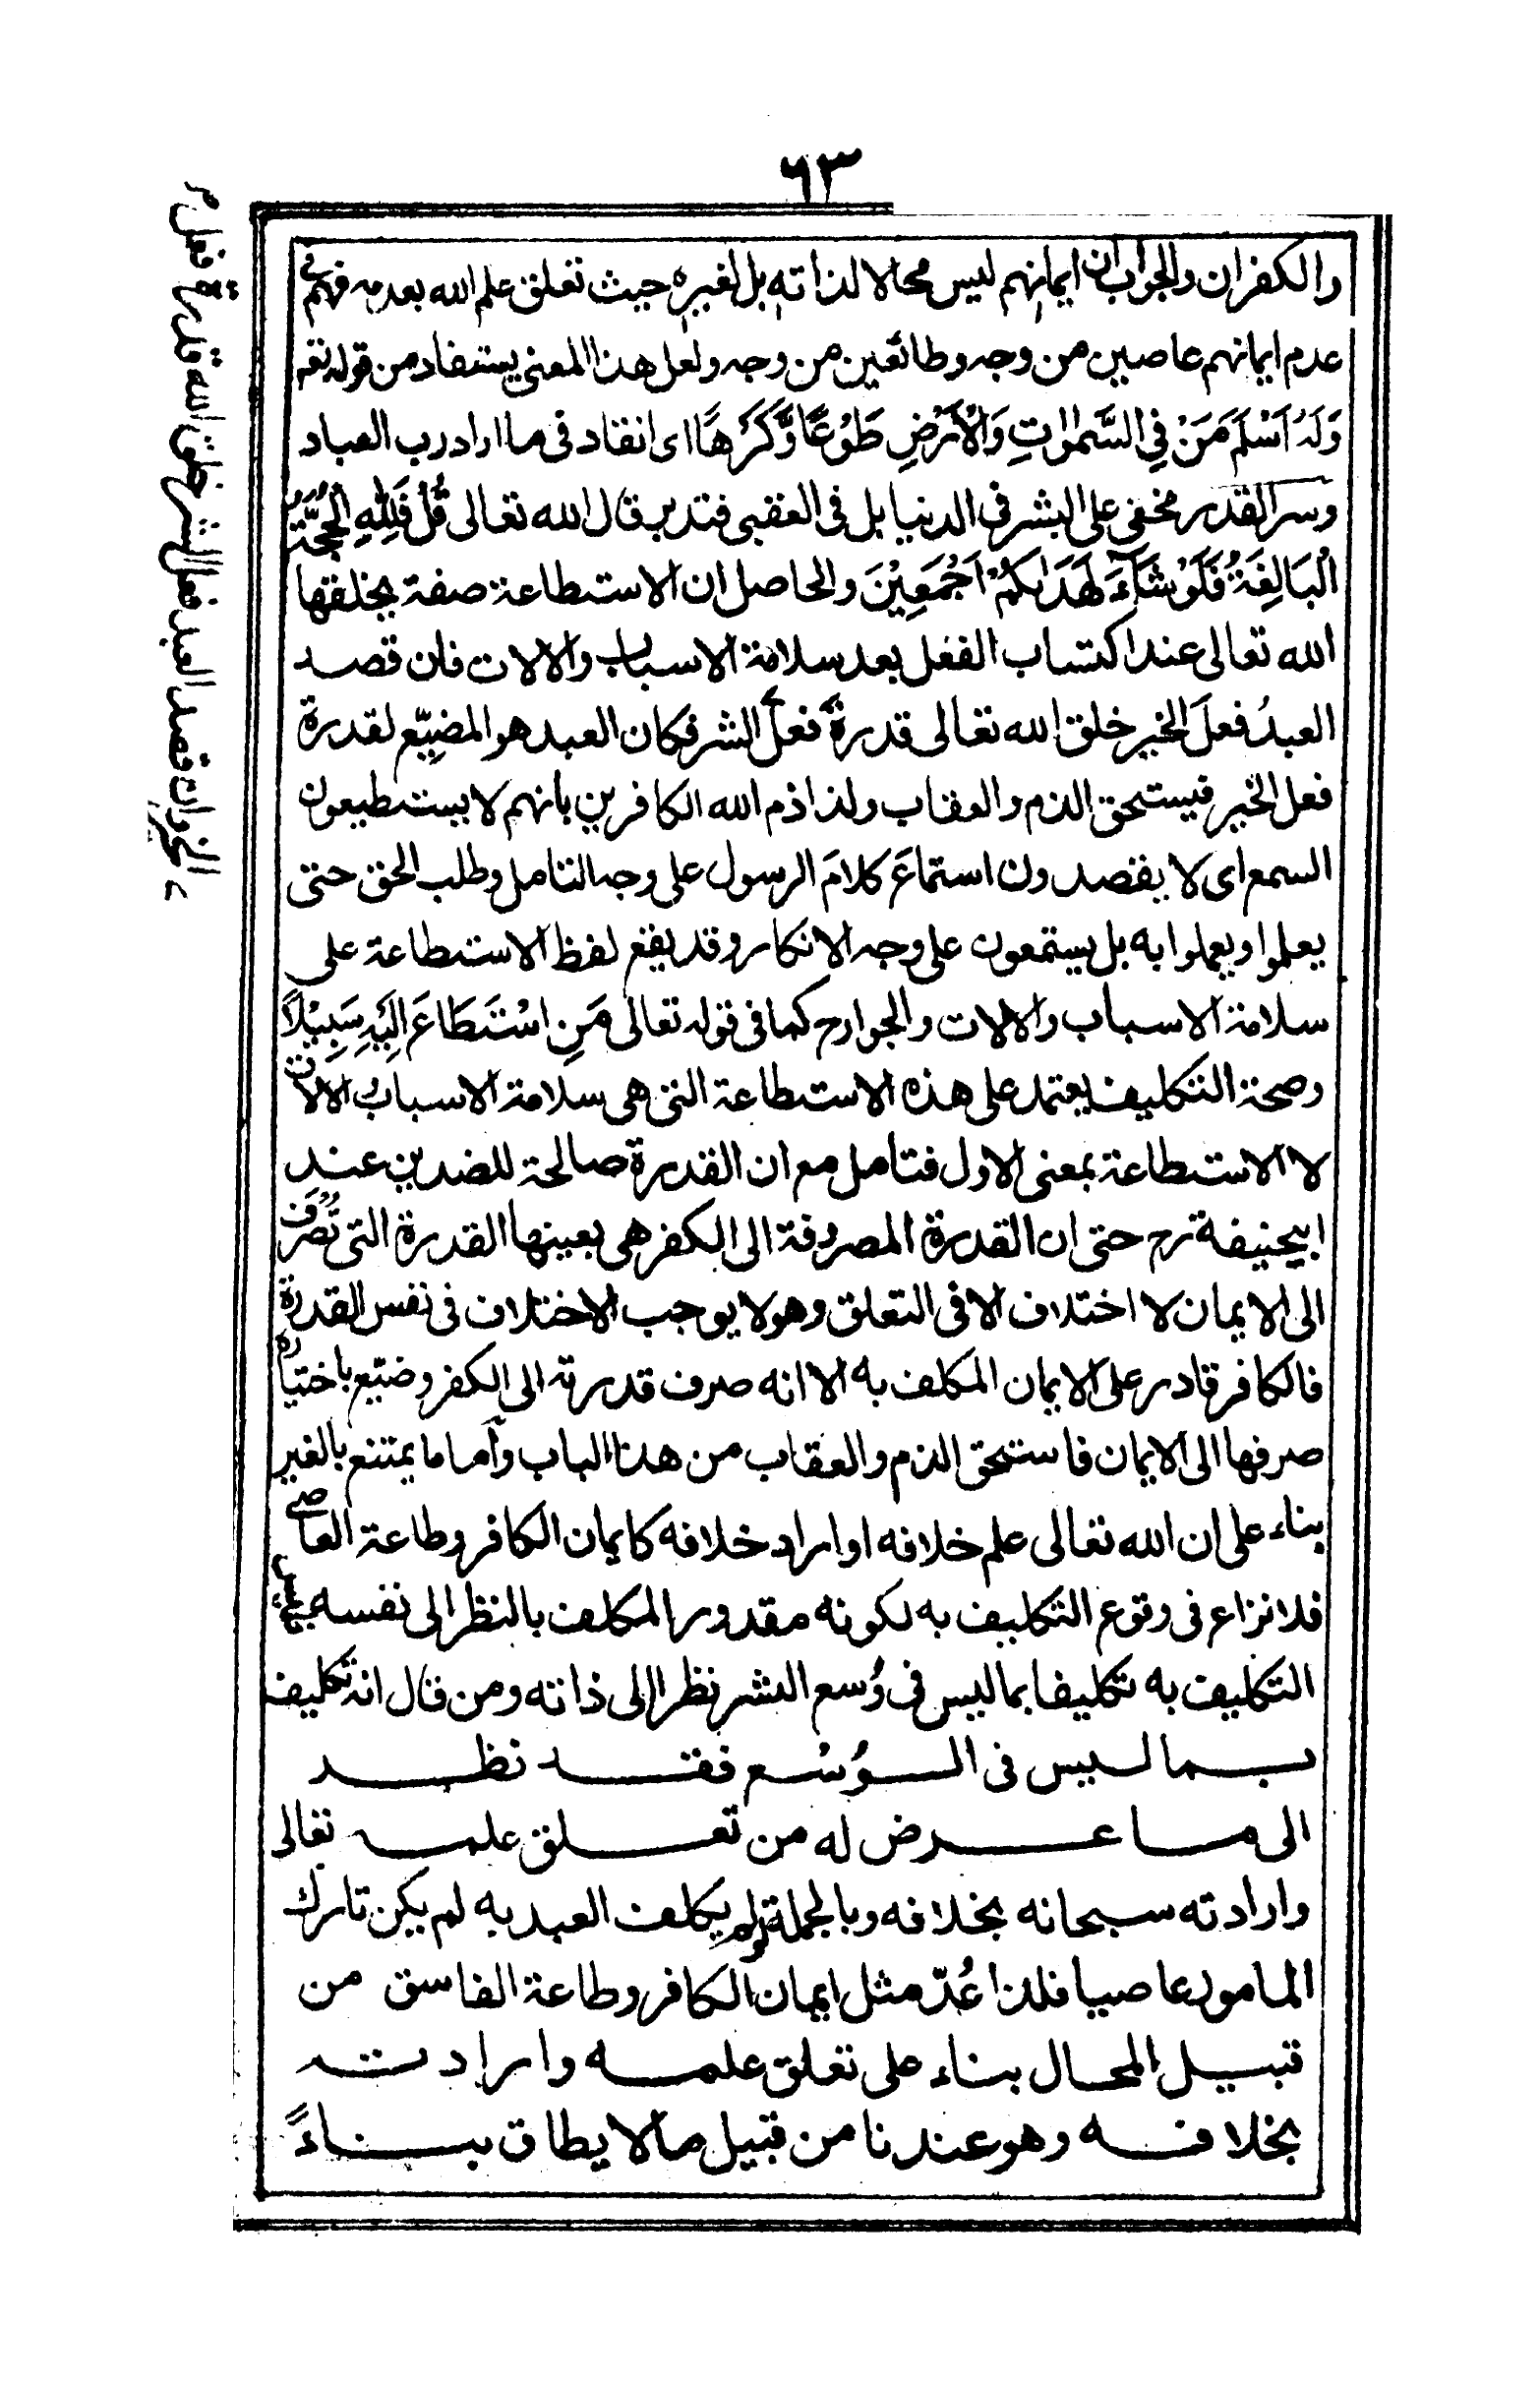 ٦٣
والكفران والجواب ان ايمانهم ليس محالا لذاته بل لغيره حيث تعلق علم الله بعدمه فهم فى
عدم ايمانهم عاصين من وجه وطائعين من وجه ولعل هذا المعنى يستفاد من قوله تعه
وَلَهُ اَسْلَمَ مَنْ فِى السَّمٰوٰاتِ وَالْاَرْضِ طَوْعًا وَّكَرْهًا اى انقاد فى ما اراد رب العباد
وسر القدر مخفى على البشر فى الدنيا بل فى العقبى فتدبر قال الله تعالى قُلْ فَلِلّٰهِ الْحُجَّةُ
الْبَالِغَةُ فَلَوْ شَآءَ لَهَدٰىكُمْ اَجْمَعِيْنَ والحاصل ان الاستطاعة صفة يخلقها
الله تعالى عند اكتساب الفعل بعد سلامة الاسباب والالات فان قصد
العبدُ فعلَ الخير خلق الله تعالى قدرة فعل الشر فكان العبد هو المضيّع لقدرة
فعل الخير فيستحق الذم والعقاب ولذا ذم الله الكافرين بانهم لا يستطيعون
السمع اى لا يقصدون استماعَ كلامَ الرسول على وجه التامل وطلب الحق حتى
يعلموا ويعملوا به بل يستمعون على وجه الانكار وقد يقع لفظ الاستطاعة على
سلامة الاسباب والالات والجوارح كما فى قوله تعالى مَنِ اسْتَطَاعَ اِلَيْهِ سَبِيْلًا
وصحة التكليف يعتمد على هذه الاستطاعة التى هى سلامة الاسباب والالات
لا الاستطاعة بمعنى الاول فتامل مع ان القدرة صالحة للضدين عند
ابيحنيفة رح حتى ان القدرة المصروفة الى الكفر هى بعينها القدرة التى تُصْرَفُ
الى الايمان لا اختلاف الا فى التعلق وهو لا يوجب الاختلاف فى نفس القدرة
فالكافر قادر على الايمان المكلف به الا انه صرف قدرته الى الكفر وضيّع باختياره
صرفها الى الايمان فاستحق الذم والعقاب من هذا الباب وأما ما يمتنع بالغير
بناء على ان الله تعالى علم خلافه او اراد خلافه كايمان الكافر وطاعة العاصى
فلا نزاع فى وقوع التكليف به لكونه مقدور المكلف بالنظر الى نفسه فليس
التكليف به تكليفا بما ليس فى وُسع البشر نظرا الى ذاته ومن قال انه تكليف
بما ليس فى الوُسْع فقد نظر
الى ما عرض له من تعلق علمه تعالى
وارادته سبحانه بخلافه وبالجملة لو لم يكلف العبد به لم يكن تارك
المامور عاصيا فلذا عُدّ مثل ايمان الكافر وطاعة الفاسق من
قبيل المحال بناء على تعلق علمه وارادته
بخلافه وهو عندنا من قبيل ما لا يطاق بناءً
قدرة فعل
الخير وان قصد العبد فعل الشر خلق الله